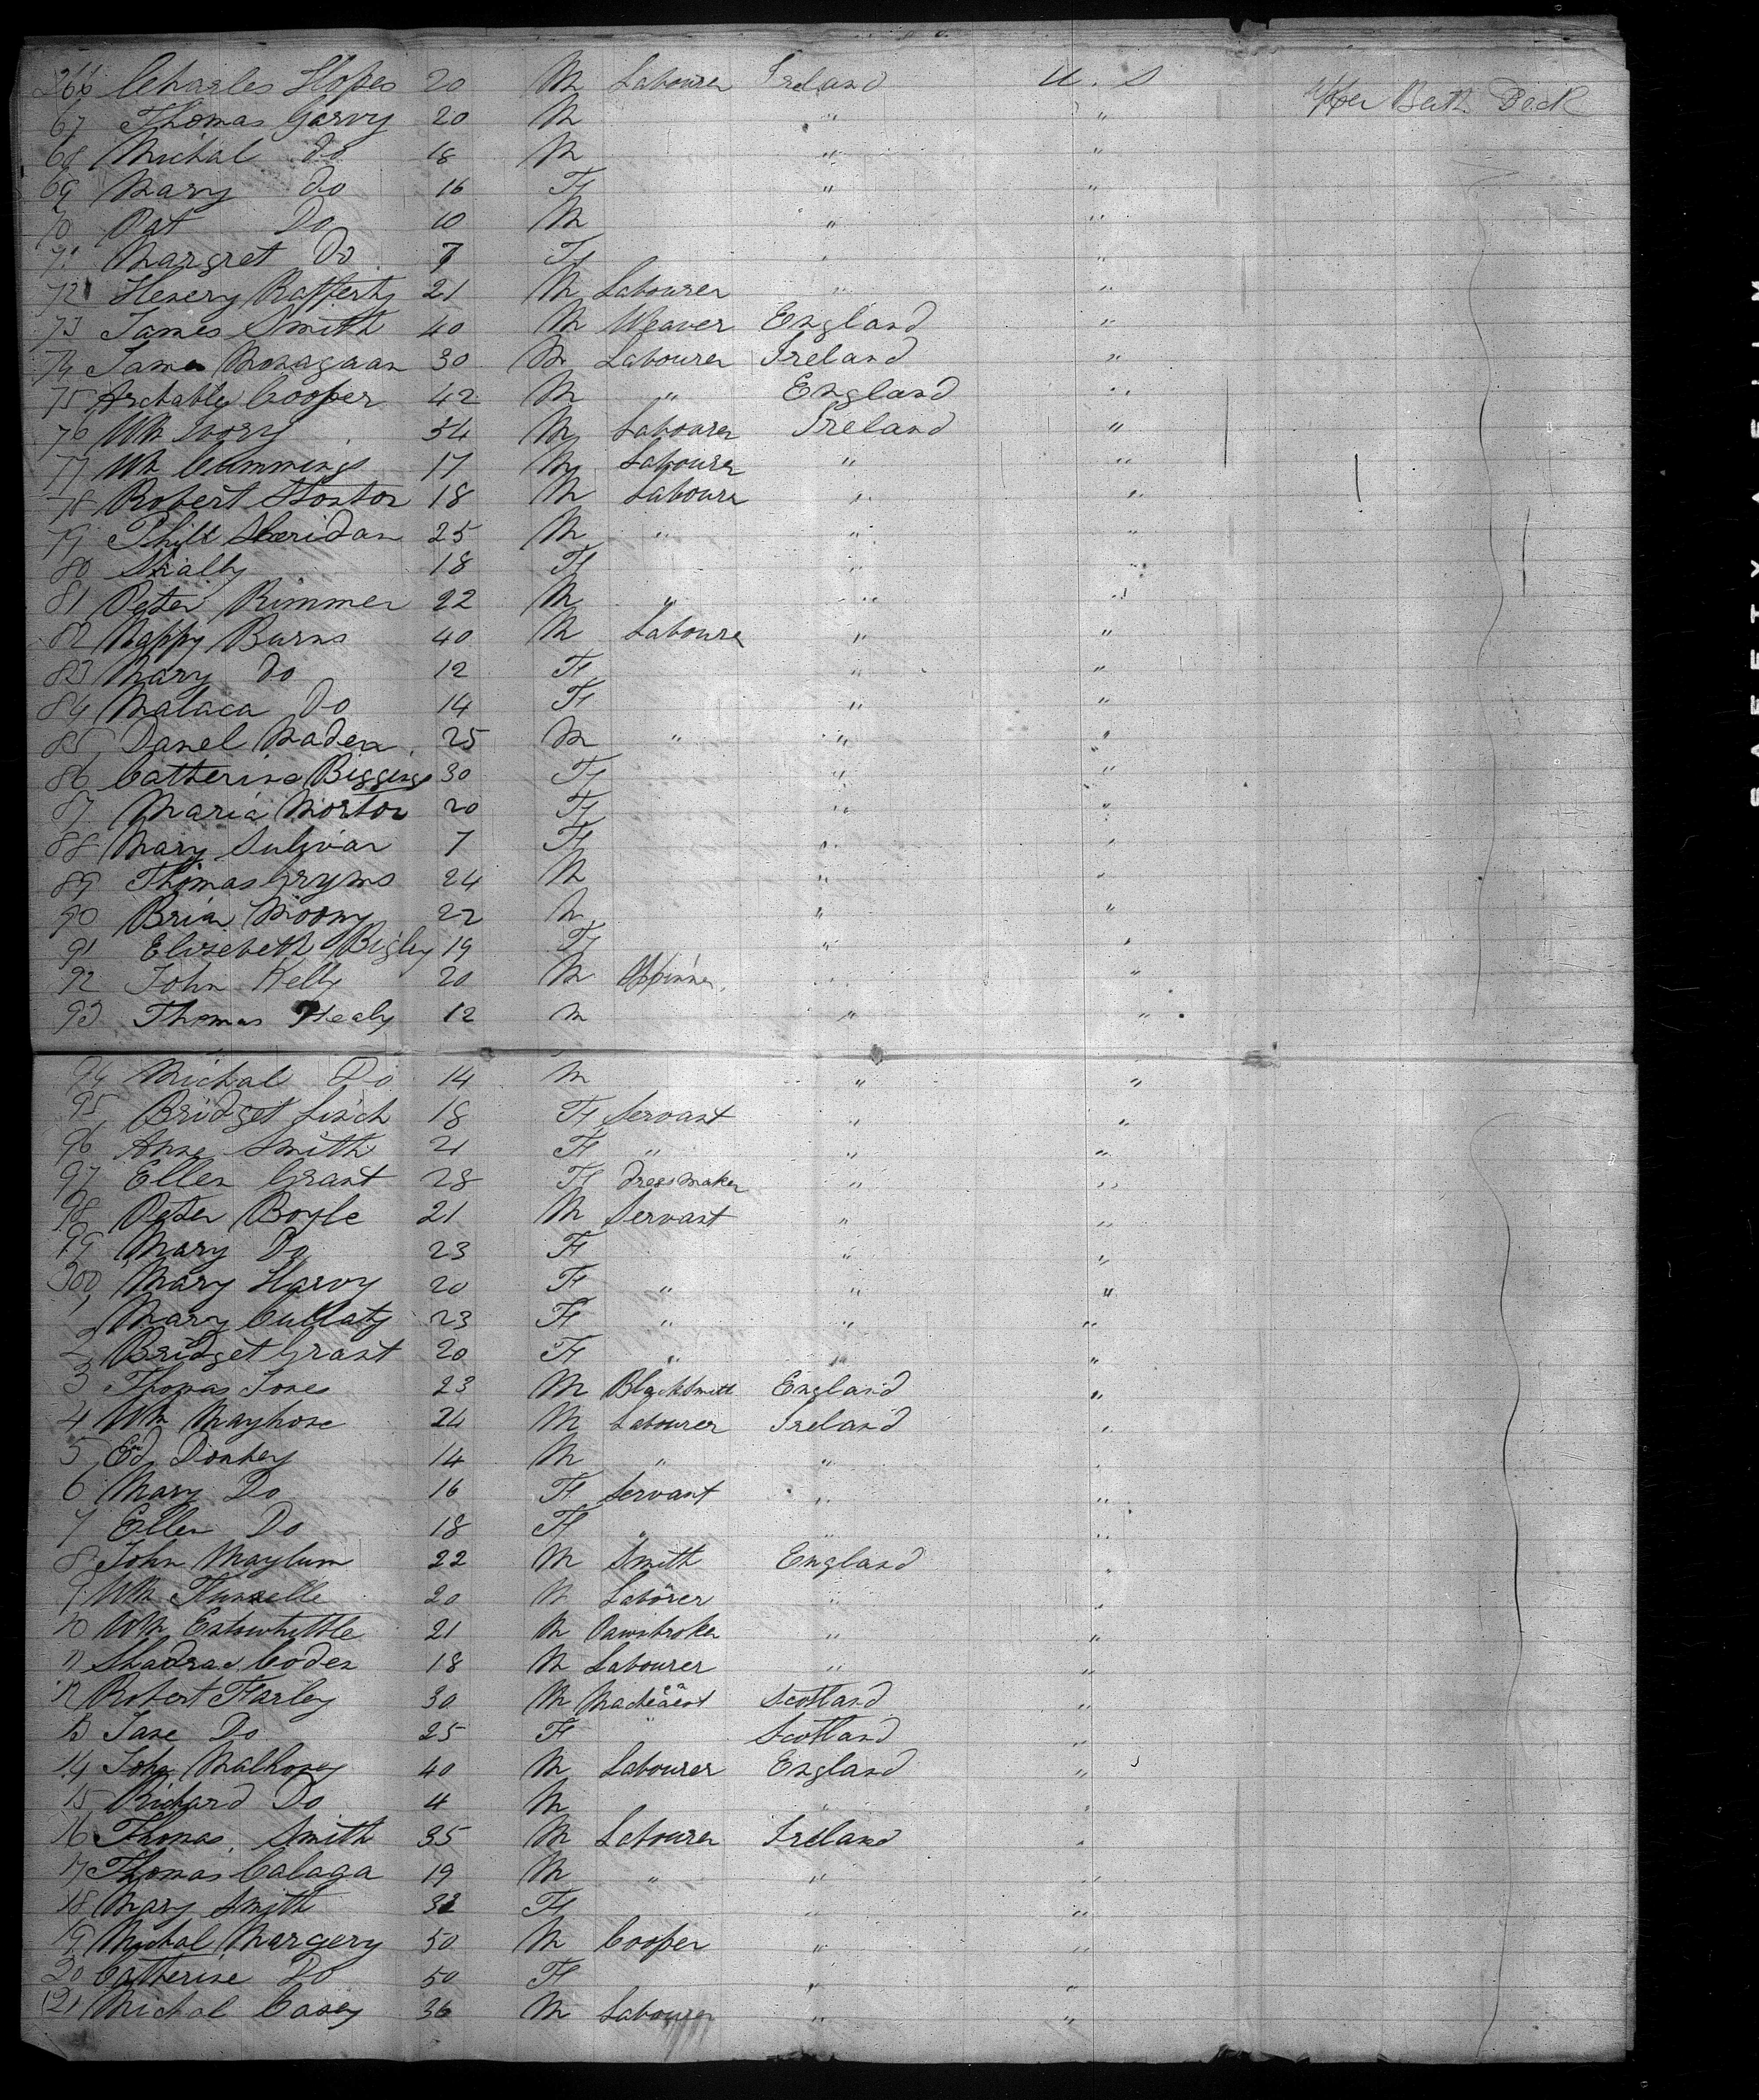 266 Charles Hopes 20 M Labourer Ireland U. S Upper Beth Deck
67 Thomas Garvy 20 M " "
68 Michal Do 18 M " "
69 Mary Do 16 F " "
70 Pat Do 10 M " "
71 Margret Do 7 F " "
72 Henery Rafferty 21 M Labourer " "
73 James Smith 40 M Weaver England "
74 James Monagaan 30 M Labourer Ireland "
75 Archable Cooper 42 M " England "
76 Wm Ivory 54 M Labourer Ireland "
77 Wm Cummings 17 M Labourer " "
78 Robert Horton 18 M Laboure " "
79 Phill Sheridan 25 M " " "
80 18 F " "
81 Peter Rimmer 22 M " " "
82 Nappy Burns 40 M Laboure " "
83 Mary Do 12 F " "
84 Malaca Do 14 F " "
85 Danel Maden 25 M " " "
86 Catherine Biggins 30 F " "
87 Maria Morton 20 F " "
88 Mary Sulivan 7 F " "
89 Thomas Gryms 24 M " "
90 Brian Moony 22 M " "
91 Elizebeth Bigley 19 F " "
92 John Kelly 20 M Spinner " "
93 Thomas Healy 12 M " "
94 Michal Do 14 M " "
95 Bridget Linch 18 F Servant " "
96 Anne Smith 21 F " " "
97 Ellen Grant 28 F dressmaker " "
98 Peter Boyle 21 M Servant " "
99 Mary Do 23 F " "
300 Mary Harvy 20 F " " "
1 Mary Cullaty 23 F " " "
2 Bridget Grant 20 F " " "
3 Thomas Jones 23 M BlackSmith England "
4 Wm Mayhone 24 M Labourer Ireland "
5 Ed Donhey 14 M " " "
6 Mary Do 16 F Servant " "
7 Ellen Do 18 F " " "
8 John Maylum 22 M Smith England "
9 Wm 20 M Laborer " "
10 Wm Entowhittle 21 M Pawnbroker " "
11 Shadrac Coden 18 M Labourer " "
12 Robert Harley 30 M Scotland "
13 Jane Do 25 F " Scotland "
14 John Malhoney 40 M Labourer England "
15 Richard Do 4 M " "
16 Thomas Smith 35 M Labourer Ireland "
17 Thomas Calaga 19 M " " "
18 Mary Smith 32 F " "
19 Michal Margery 50 M Cooper " "
20 Catherine Do 50 F " "
21 Michal Casey 36 M Labourer " "